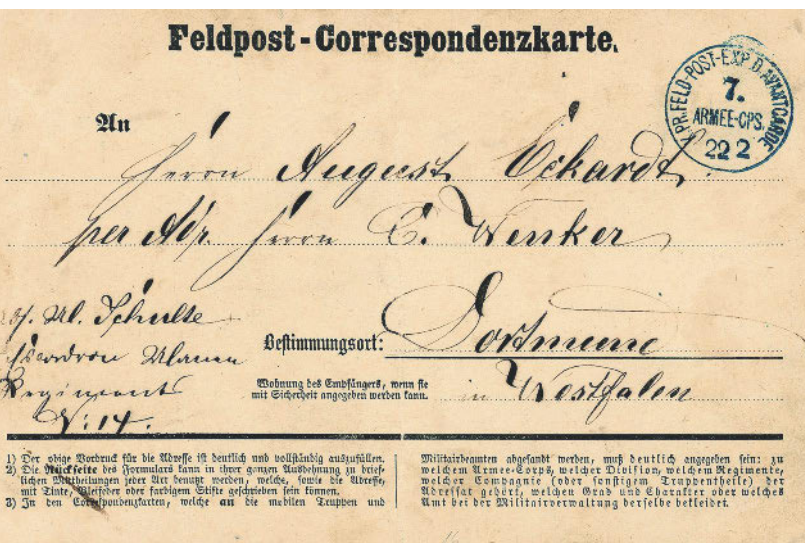 Feldpost-Correspondenzkarte.
K. PR. FELD-POST-EXP. D. AVANTGARDE
7.
ARMEE-CPS.
22 2
An
Herrn August Eckardt
per Adr. Herrn C. Wenker
Ul. Schulte
Escadron Ulanen
Regiments
N: 14.
Bestimmungsort: Dortmund
Wohnung des Empfängers, wenn sie
mit Sicherheit angegeben werden kann.
in Westfalen
1) Der obige Vordruck für die Adresse ist deutlich und vollständig auszufüllen.
2) Die Rückseite des Formulars kann in ihrer ganzen Ausdehnung zu brief-
lichen Mittheilungen jeder Art benutzt werden, welche, sowie die Adresse,
mit Tinte, Bleifeder oder farbigem Stifte geschrieben sein können.
3) In den Correspondenzkarten, welche an die mobilen Truppen und
Militairbeamten abgesandt werden, muß deutlich angegeben sein: zu
welchem Armee-Corps, welcher Division, welchem Regimente,
welcher Compagnie (oder sonstigem Truppentheile) der
Adressat gehört, welchen Grad und Charakter oder welches
Amt bei der Militairverwaltung derselbe bekleidet.